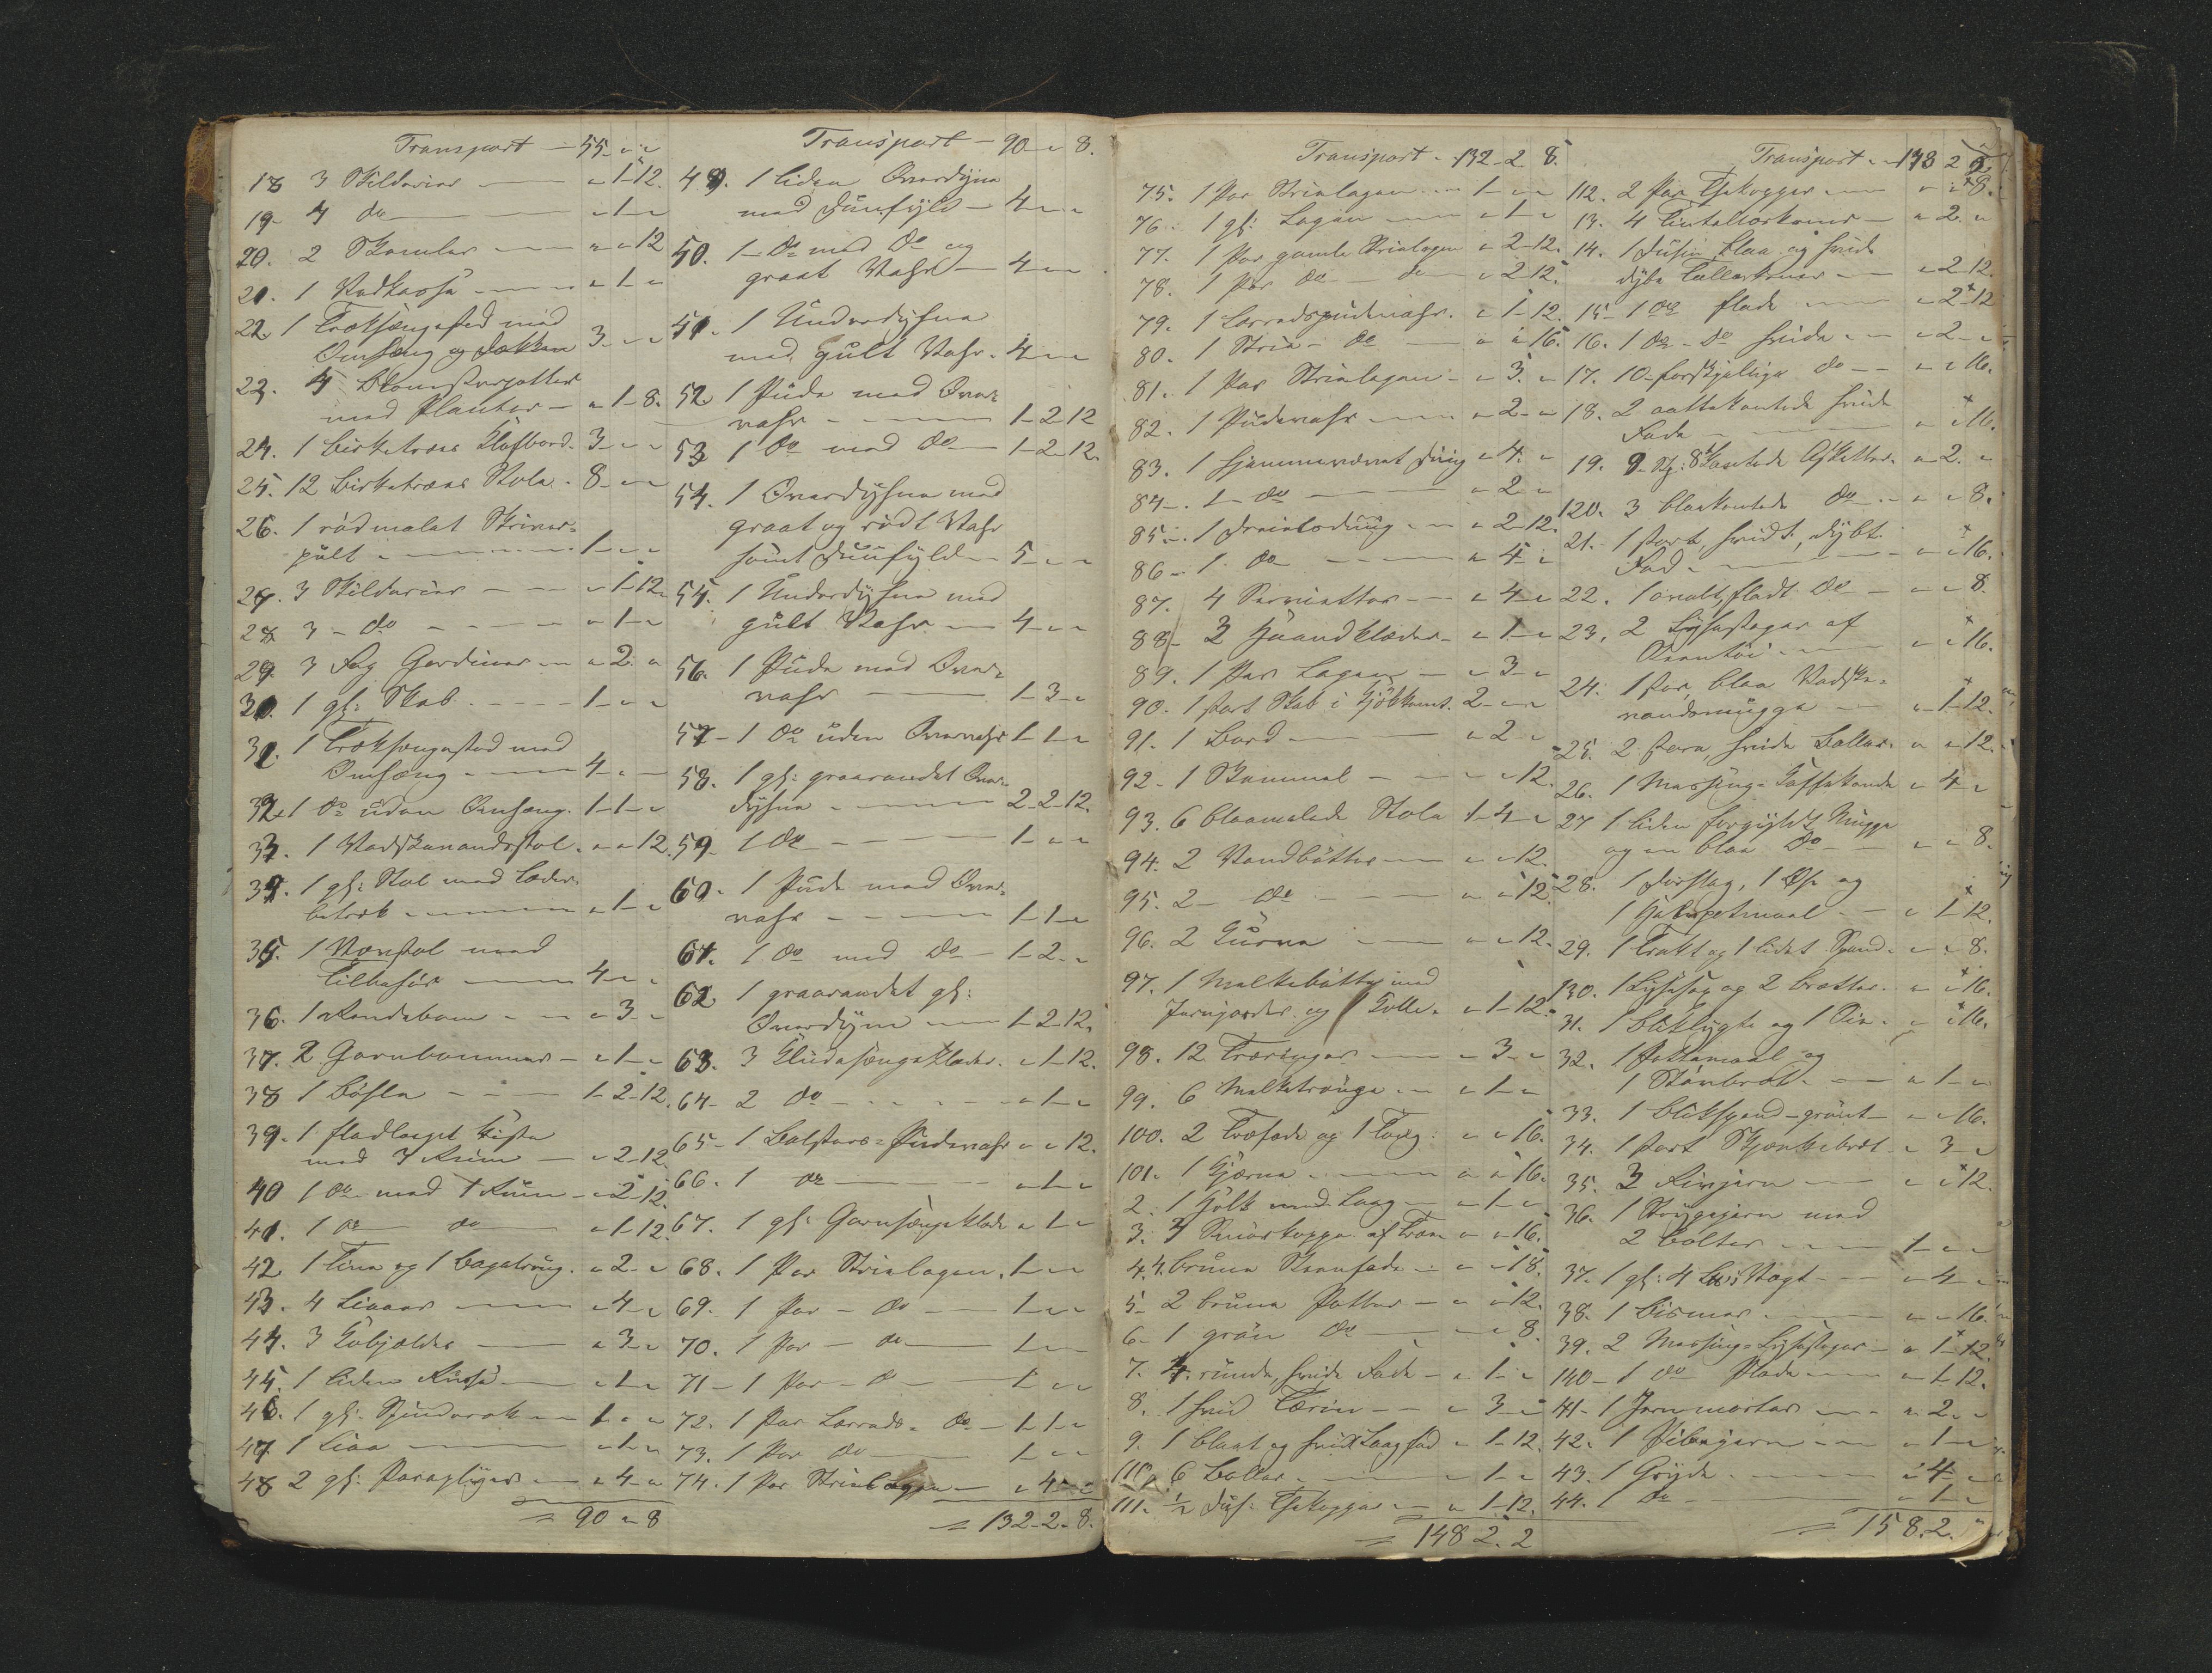 Transport - 55 " "
18 3 Skilderier - " 1 12.
19- 4 do - " 1 "
20. 2 Skamler - " " 12
21. 1 Vedkasse - " 1 "
22. 1 Træksængested med
Omhæng og Dækken 3. " "
23. 4 Blomsterpotter
med Planter - " 1 8.
24. 1 Birketræes Klafbord. 3 - " "
25. 12 Birketræes Stole. 8 - " "
26. 1 rødmalet Skriver-
pult - 1 - " "
27. 3 Skilderier - " 1 12.
28 3 - do - " 1 "
29. 3 Fag Gardiner - " 2. "
30. 1 gl: Skab - 1 - " "
31. 1 Træksengested med
Omhæng - 4 - " "
32. 1 do uden Omhæng. 1-1- "
33. 1 Vadskevandsstol - " " 12.
34. 1 gl: Stol med Læder-
betræk - " 1 - "
35. 1 Vævstol med
Tilbehør - 4 - " "
36. 1 Rendebom - " 3 - "
37. 2 Garnbommer - " 1 - "
38 1 Bøsse - 1-2-12.
39. 1 fladlaaget Kiste
med 3 Rum - " 2-12.
40 1 do med 1 Rum - " 2-12.
41. 1 do do " 1-12.
42. 1 Tine og 1 Bagetrug. " 2- "
43. 4 Liaaer - " 4 - "
44. 3 Kobjælder - " 3 - "
45. 1 liden Kiste - " 1 - "
46. 1 gl: Spinderok - 1 - " "
47. 1 Liaa - " 1 - "
48 2 gl: Paraplyer - " 4 - "
= 90 " 8
Transport - 90 - " 8.
49. 1 liden Overdyne
med Duunfyld - 4 - " "
50. 1 - do med do og
graat Vahr - 4 - "
51. 1 Underdyhne
med gult Vahr. 4 - " "
52. 1 Pude med Over-
vahr - 1-2 12
53 1 do med do - 1-2-12.
54. 1 Overdyhne med
graat og rødt Vahr
samt Duunfyld - 5 - " "
55. 1 Underdyhne med
gult Vahr - 4 - " "
56. 1 Pude med Over-
vahr - 1-3- "
57 - 1 do uden Overvahr 1-1- "
58. 1 gl: graarandet Over-
dyhne - 2-2-12.
59- 1 do - 1 - " "
60. 1 Pude med Over-
vahr - 1-1- "
61. 1 do med do - 1-2- "
62. 1 graarandet gl:
Overdyne - 1-2-12.
63. 3 Kludesængeklæder. " 1-12.
64- 2 do - " 1 - "
65- 1 Bolsters-Pudevahr " " 12.
66. 1 do - " 1 - "
67. 1 gl: Garnsængeklæde " 1 - "
68. 1 Par Strielagen. 1 - " "
69. 1 Par - do - 1 - " "
70. 1 Par - do - 1 - "
71 - 1 Par - do - 1 " "
72. 1 Par Lærreds- do - 1-1- "
73. 1 Par do 1 - " "
74. 1 Par Strielagen - " 4 - "
= 132-2-8.
Transport - 132-2 8.
75. 1 Par Strielagen - 1 - " "
76. 1 gl: Lagen - " 1 - "
77. 1 Par gamle Strielagen " 2-12.
78. 1 Par do do " 2 12.
79. 1 Lærredspudevahr. " 1-12.
80. 1 Strie- do - " " 16.
81. 1 Par Strielagen - " 3. "
82. 1 Pudevahr - " 2 - "
83. 1 hjemmevævet Dug " 4. "
84-. 1 - do - " 2 - "
85-. 1 Dreielsdug - " 2-12.
86 -. 1 do - " 4 - "
87. 4 Servietter - " 4 - "
88- 3 Haandklæder - " 1 - "
89. 1 Par Lagen - " 3 - "
90. 1 stort Skab i Kjøkkenet. 2 - " "
91. 1 Bord - " 2 - "
92- 1 Skammel - " " 12.
93. 6 blaamalede Stole 1-4- "
94. 2 Vandbøtter - " " 12.
95. 2 - do - " " 12.
96. 2 Kurve - " " 12.
97. 1 Melkebøtte med
Jerngjorder og 1 Kolle. " 1-12.
98. 12 Træringer - " 3 - "
99. 6 Melketrauge - " 1 - "
100. 2 Træfade og 1 Traug. " " 16.
101. 1 Kjærne - " " 16.
2. 1 Holk med Laag - " 1 - "
3. 3 Smørkopper af Træ " " 16.
4. 4 brune Steenfade - " " 18.
5- 2 brune Potter - " " 12.
6- 1 grøn do - " " 8.
7. 4. runde, hvide Fade - " 1 - "
8. 1 hvid Terin - " 3 - "
9. 1 blaat og hvidt Laagfad " 1-12.
110. 6 Boller - " 1 - "
111. ½ Dus: Thekopper - " 1-12.
= 148 2. 2
Transport - 148 2 2.
112. 2 Par Thekopper - " " 8.
13. 4 Tinteltallerkener - " 2. "
14. 1 Dusin blaa og hvide
dybe Tallerkener - " 2 12.
15- 1 do flade - " 2-12
16. 1 do - do hvide - " 2 - "
17. 10 - forskjellige do - " " 16.
18. 2 aattekantede hvide
Fade - " " 16.
19. 9 St: 8kantede Asietter. " 2. "
120. 3 blaakantede do - " " 8.
21. 1 stort, hvidt, dybt
Fad - " " 16.
22. 1 ovalt, fladt do - " " 8.
23. 2 Lysestager af
- " " 16.
24. 1 stor, blaa Vadske-
vandsmugge - " 1-12.
25. 2 store, hvide Boller. " " 12.
26. 1 Messing-Kaffekande " 4 - "
27 1 liden forgyldt Mugge
og en blaa do - " " 8.
28. 1 Dørslag, 1 Øse og
1 Halvpotmaal - " 1-12.
29. 1 Tragt og 1 lidet Spand - " " 8.
130. 1 Lysesax og 2 Bretter. " " 16.
31. 1 Bliklygte og 1 " " 16.
32. 1 Pottemaal og
1 - " 1 - "
33. 1 Blikspand-grønt - " " 16.
34. 1 stort Skjænkebret - " 3 - "
35. 3 Rivjern - " " 12.
36. 1 Strygejern med
2 Bolter - 1 - " "
37. 1 gl: 4 Vægt - " 4 - "
38. 1 Bismer - " " 16.
39. 2 Messing-Lysestager - " 1-12.
140 - 1 do Plade - " 1-12.
41 - 1 Jernmorter - " 2 - "
42. 1 Pibejern - " 1 - "
43. 1 Gryde - " 4 - "
44. 1 do - " 1 - "
= 158. 2. "